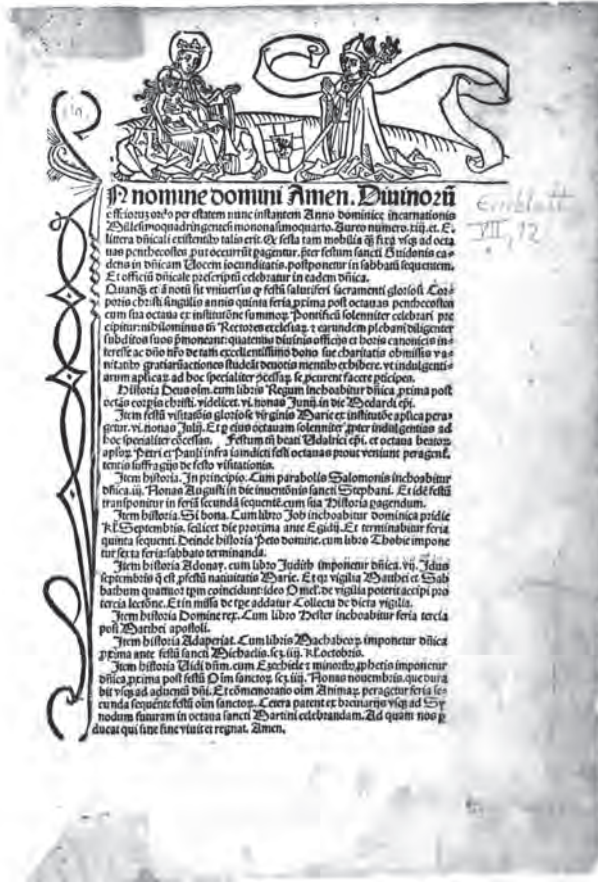 N nomine domini Amen. Diuinorū
efficiorūꝫ ordo per estatem nunc instantem Anno dominice incarnationis
Millesimoquadringentesimononagesimoquarto. Aureo numero. xiij. et. E.
littera dn̄icali existentibꝰ talis erit. Qꝫ festa tam mobilia q̄ fixa vsqꝫ ad octa
uas penthecostes put occurrūt pagentur. p̄ter festum sancti Guidonis ca-
dens in dn̄icam Uocem iocunditatis. postponetur in sabbatū sequentem.
Et officiū dn̄icale prescriptū celebratur in eadem dn̄ica.
Quanqꝫ et a notū sit vniuersis ꝙ festū salutiferi sacramenti gloriosi Cor-
poris christi singulis annis quinta feria, prima post octauas penthecosten
cum sua octaua ex institutōne summoꝝ Pontificū solenniter celebrari pre
cipitur: nihilominus tn̄ Rectores ecclesiaꝝ ⁊ earundem plebani diligenter
subditos suos p̄moneant: quatenus diuinis officijs et horis canonicis in-
teresse ac dn̄o nr̄o de tam excellentissimo dono sue charitatis obmissis va-
nitatibꝰ gratiarūactiones studeāt deuotis mentibꝰ exhibere. vt indulgenti-
arum aplicaꝝ ad hoc specialiter ꝯcessaꝝ se ꝓcurent facere pticipes.
Historia Deus oīm. cum libris Regum inchoabitur dn̄ica prima post
octās corpis christi. videlicet. vi. nonas Junij. in die Medardi epī.
Item festū visitatōis gloriose virginis Marie ex institutōe aplica pera-
getur. vi. nonas Julij. Et ꝑ eius octauam solenniter ꝓpter indulgentias ad
hoc specialiter cōcessas. Festum tn̄ beati Udalrici epī. et octaua beatoꝝ
aploꝝ Petri et Pauli infra iamdicti festi octauas prout veniunt peragent̄.
tentis suffragijs de festo visitationis.
Item historia. In principio. Cum parabolis Salomonis inchoabitur
dn̄ica. iij. Nonas Augusti in die inuentōnis sancti Stephani. Et idē festū
transponitur in feriā secundā sequentē. cum sua Historia pagendum.
Item historia. Si bona. Cum libro Job inchoabitur dominica pridie
Kl̄. Septembris. scilicet die proxima ante Egidij. Et terminabitur feria
quinta sequenti. Deinde historia Peto domine. cum libro Thobie impone
tur sexta feria: sabbato terminanda.
Item historia Adonay. cum libro Judith imponetur dn̄ica. vij. Idus
septembris q̄ est ꝓfestū natiuitatis Marie. Et qꝛ vigilia Matthei et Sab
bathum quattuor tꝑm coincidunt: ideo Omel̄. de vigilia poterit accipi pro
tercia lectōne. Et in missa de tꝑe addatur Collecta de dicta vigilia.
Item historia Domine rex. Cum libro Hester inchoabitur feria tercia
post Matthei apostoli.
Item historia Adaperiat. Cum libris Machabeoꝝ imponetur dn̄ica
ꝓxima ante festū sancti Michaelis. scꝫ. iiij. Kl̄. octobris.
Item historia Uidi dn̄m. cum Ezechiele ⁊ minoribꝰ ꝓphetis imponetur
dn̄ica ꝓxima post festū Oīm sanctoꝝ. scꝫ. iiij. Nonas nouembris. que dura
bit vsqꝫ ad aduentū dn̄i. Et cōmemoratio oīm Animaꝝ peragetur feria se-
cunda sequente festū oīm sanctoꝝ. Cetera patent ex breuiarijs vsqꝫ ad Sy
nodum futuram in octaua sancti Martini celebrandam. Ad quam nos ꝑ
ducat qui sine fine viuit et regnat. Amen.
VII, 12